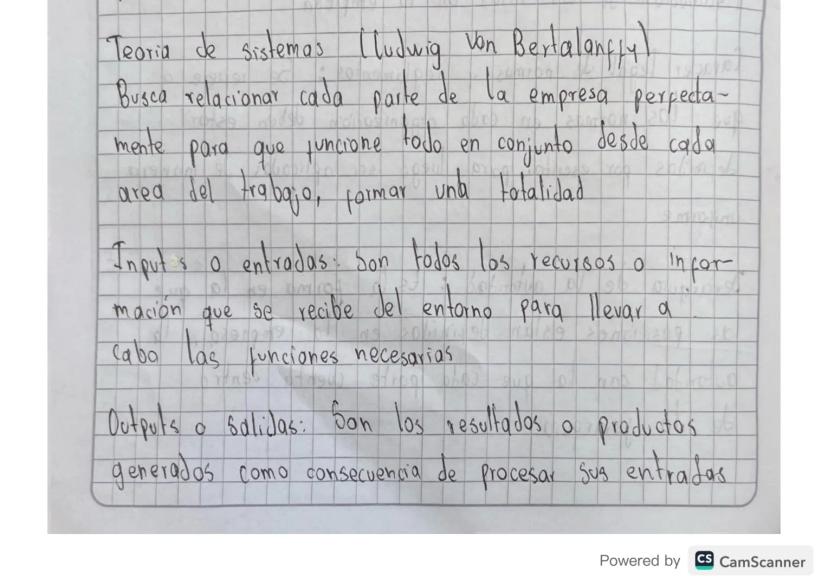 Teoria de sistemas (Ludwig Von Bertalanffy)
Busca relacionar cada parte de la empresa perfecta-
mente para que funcione todo en conjunto desde cada
area del trabajo, formar una totalidad
Inputs o entradas: Son todos los recursos o infor-
mación que se recibe del entorno para llevar a
cabo las funciones necesarias
Outputs o Salidas: Son los resultados o productos
generados como consecuencia de procesar sus entradas
Powered by CS CamScanner